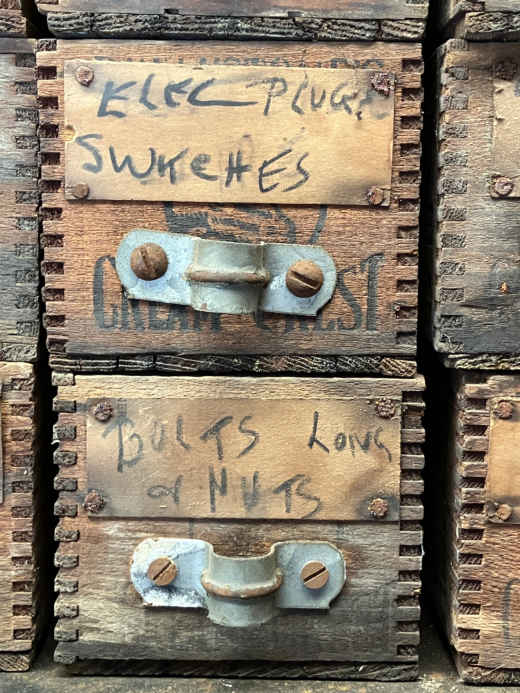 ELEC PLUGS
SWITCHES
CREAM CREST
BOLTS LONG
& NUTS